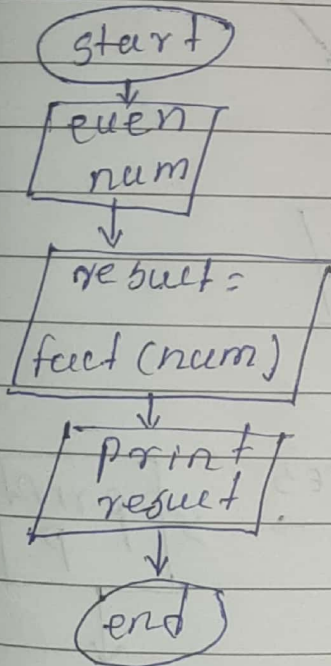 start
even
num
result =
fact (num)
print
result
end